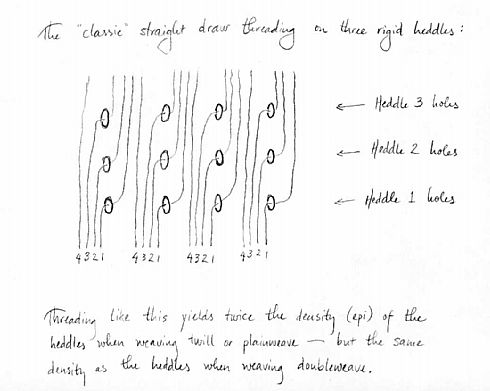 The "classic" straight draw threading on three rigid heddles:
Heddle 3 holes
Heddle 2 holes
Heddle 1 holes
4321 4321 4321 4321
Threading like this yields twice the density (epi) of the
heddles when weaving twill or plainweave — but the same
density as the heddles when weaving doubleweave.